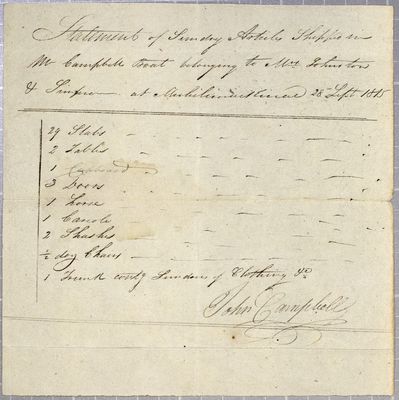 Statement of Sundry Articles Shipped in
Mr Campbells Boat belonging to Mrs Johnston
& at Michilimackinac 28 Sept 1815
29 Slabs
2 Tables
1 Cupboard
3 Doors
1 Horse
1 Canoe
2 Shashes
½ doz Chairs
1 Trunk contg Sundries of Clothing &c
John Campbell